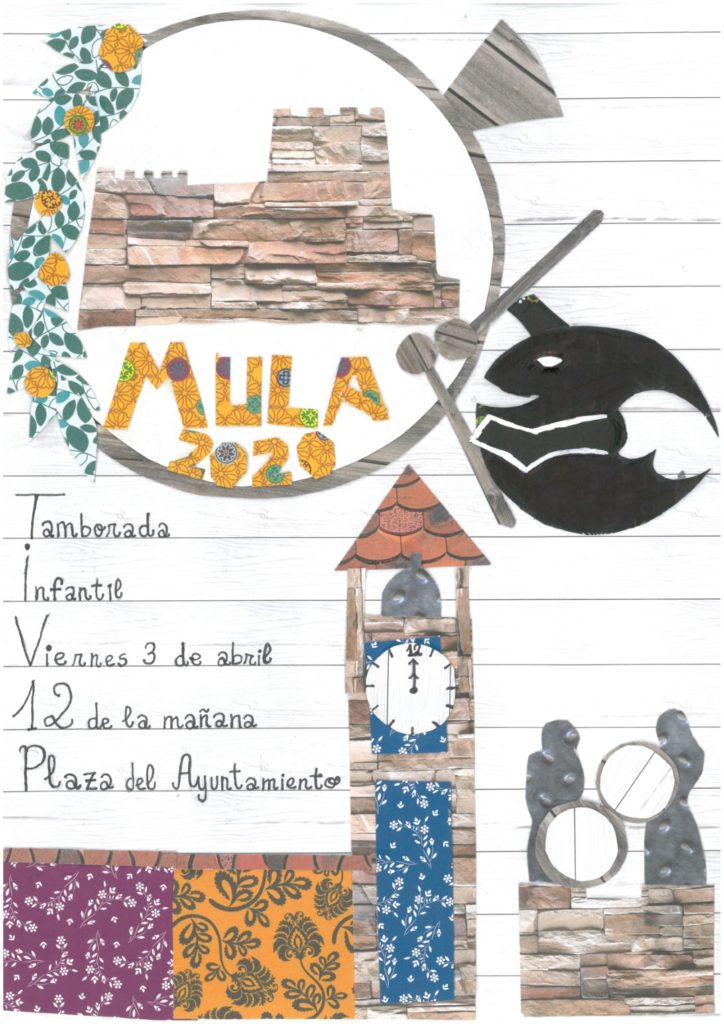 MULA
2020
Tamborada
Infantil
Viernes 3 de abril
12 de la mañana
Plaza del Ayuntamiento
12